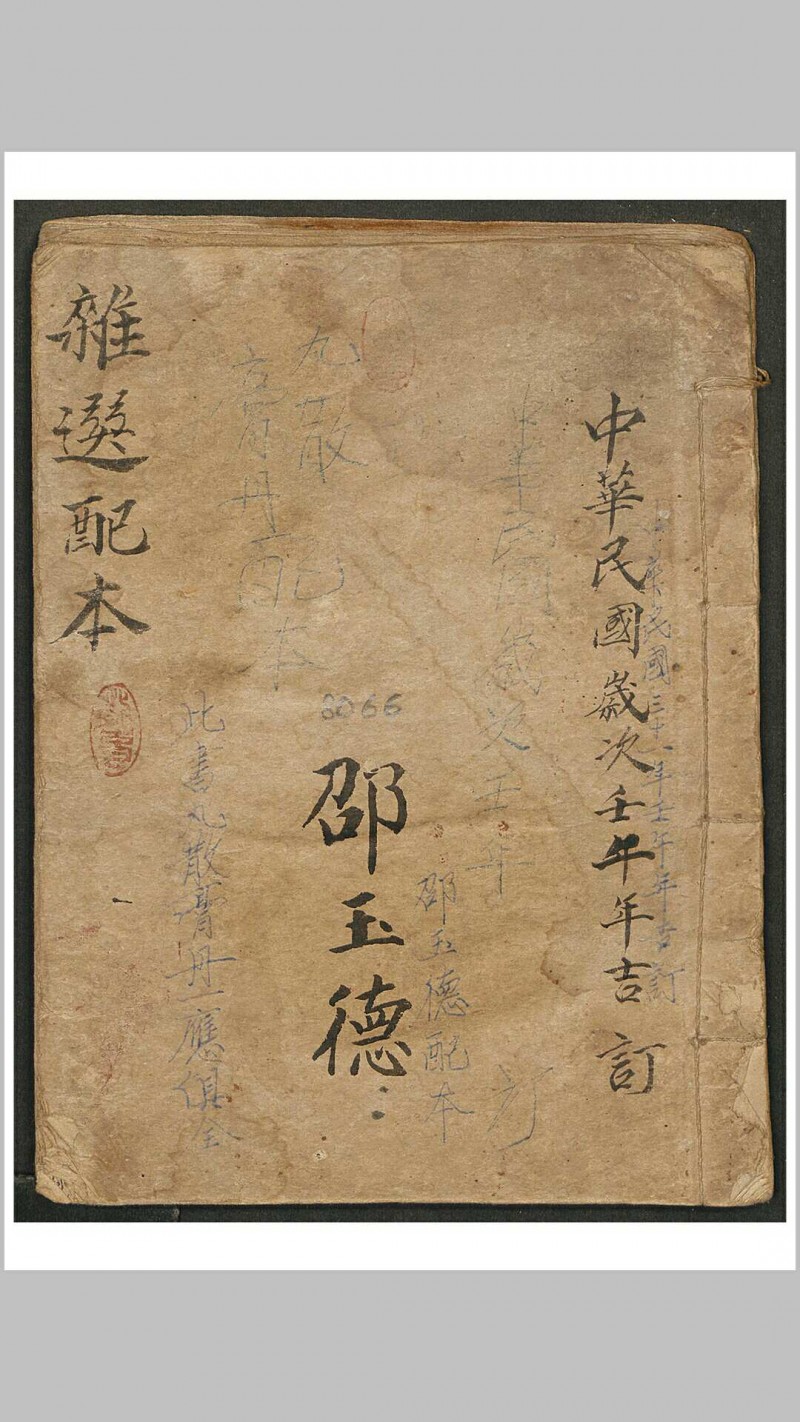 中華民國三十一年壬午年吉訂
中華民國歲次壬午年吉訂
中華民國歲次壬午 訂
邵玉德配本
邵玉德
8066
丸散
膏丹配本
此書丸散膏丹一應俱全
雜選配本